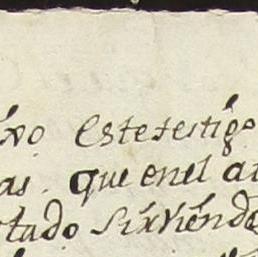 ixo Este testigo
as. que en el a
rtado Sirviendo